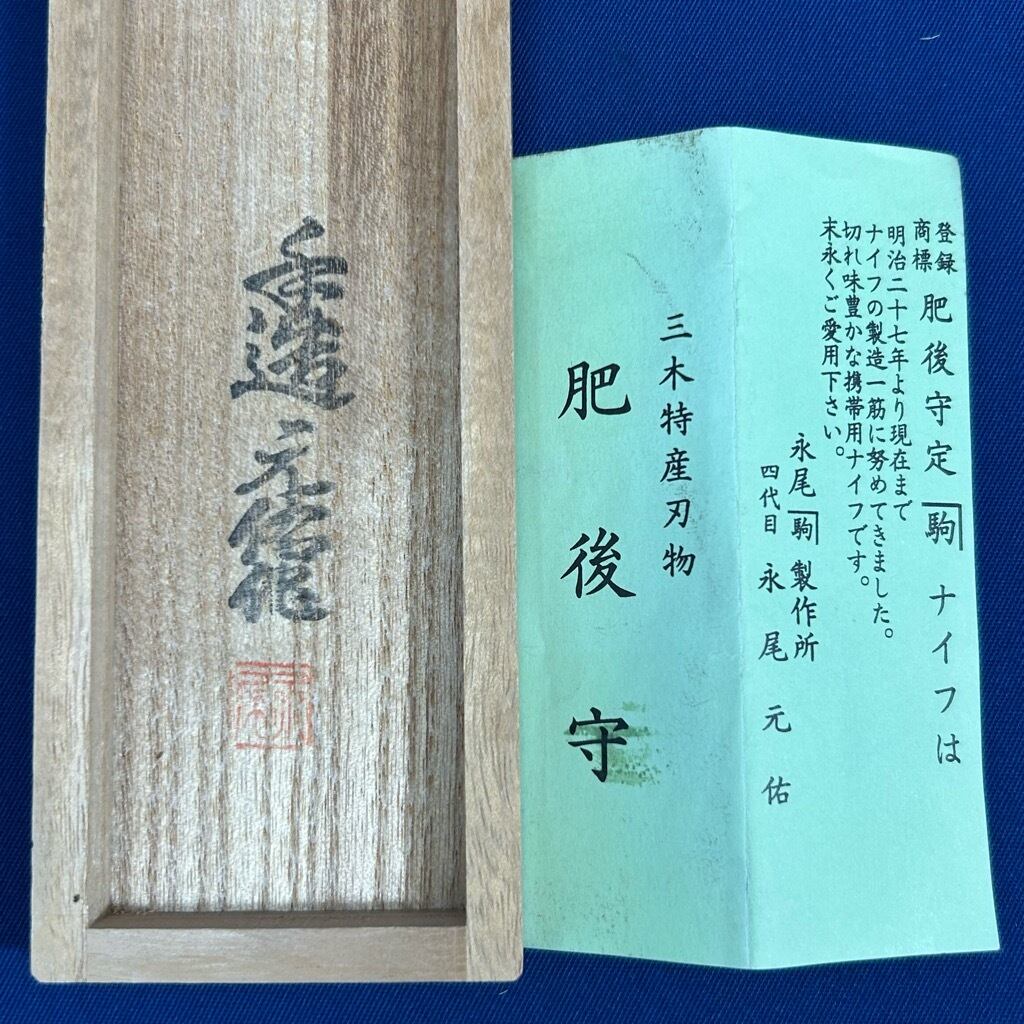 手造
元佑作
三木特産刃物
肥後守
登録商標 肥後守定 駒 ナイフは
明治二十七年より現在まで
ナイフの製造一筋に努めてきました。
切れ味豊かな携帯用ナイフです。
末永くご愛用下さい。
永尾 駒 製作所
四代目 永尾元佑